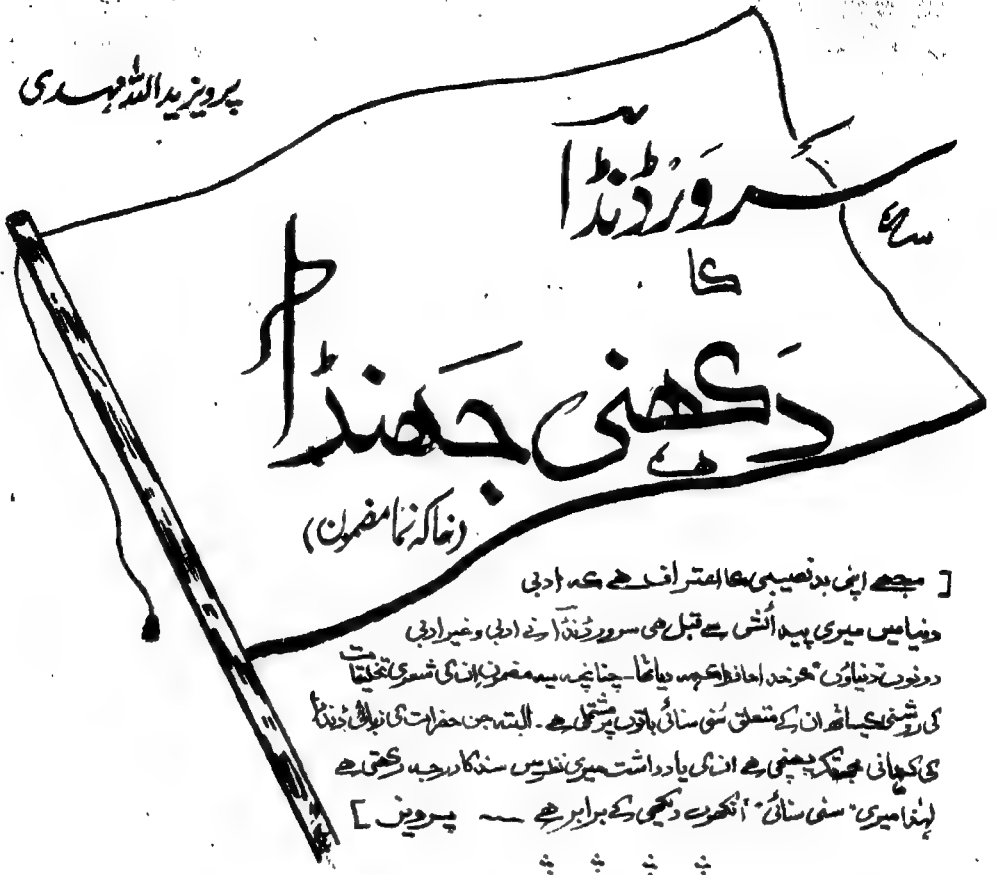 پرویز یداللہ مہدی
سرور ڈنڈا
کا
دکھنی جھنڈا
(خاکہ نما مضمون)
[ مجھے اپنی بدنصیبی کا اعتراف ہے کہ ادبی
دنیا میں میری پیدائش سے قبل ہی سرور ڈنڈا نے ادبی وغیر ادبی
دونوں دنیاؤں کو خدا حافظ کہہ دیا تھا۔ چنانچہ یہ مضمون ان کی شعری تخلیقات
کی روشنی کیساتھ ان کے متعلق سُنی سنائی باتوں پر مشتمل ہے۔ البتہ جن حضرات کی زبانی ڈنڈا
کی کہانی مجھ تک پہنچی ہے ان کی یادداشت میری نظر میں سند کا درجہ رکھتی ہے
لہٰذا میری "سنی سنائی" آنکھوں دیکھی کے برابر ہے ــــ پرویز ]